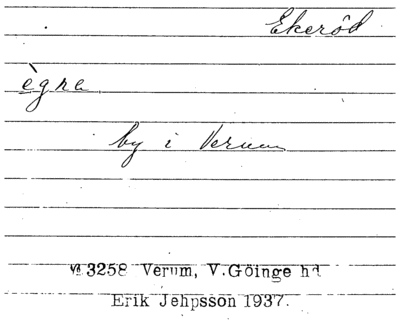 Ekeröd
ègna
by i Verum
3258 Verum, V. Göinge hd
Erik Jehpsson 1937.